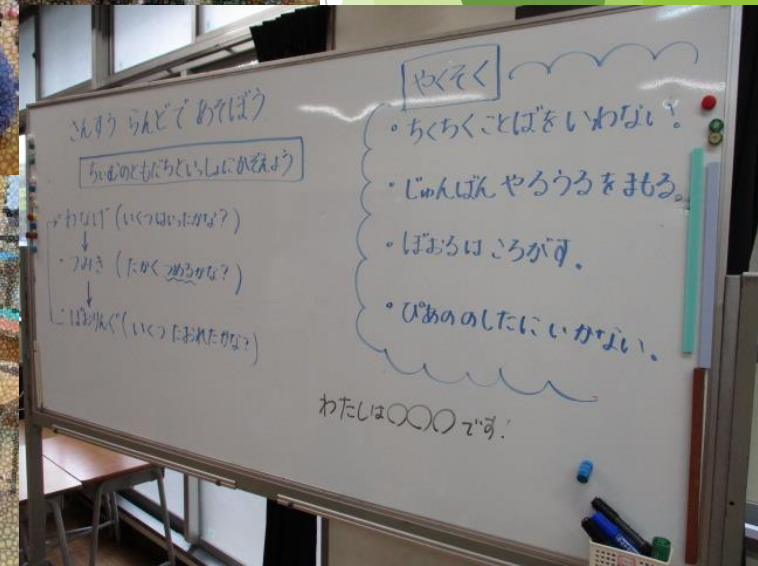 さんすう らんどで あそぼう
ちいむのともだちといっしょにかぞえよう
・わなげ (いくつはいったかな?)
↓
・つみき (たかくつめるかな?)
↓
・ぼおりんぐ (いくつ たおれたかな?)
やくそく
・ちくちくことばをいわない。
・じゅんばん やるうるをまもる。
・ぼおるは ころがす。
・ぴあののしたに いかない。
わたしは○○○です!